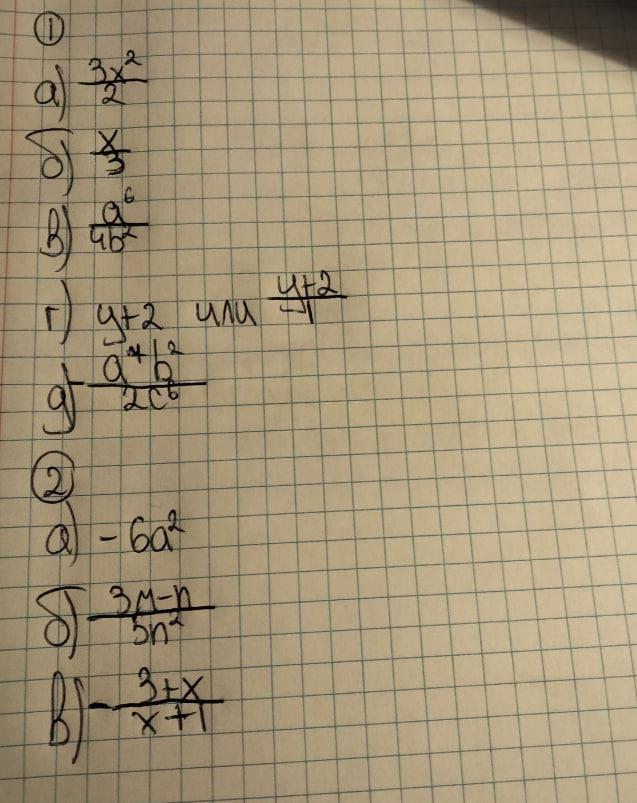 ①
а) 3x²/2
б) x/3
в) a⁶/4b²
г) y+2 или y+2/-1
д) a⁴b²/2c⁶
②
а) - 6a²
б) 3м-n/5n²
в) - 3+x/x+1